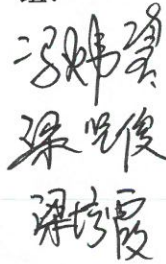 冯炜贤
梁觉俊
梁培霞